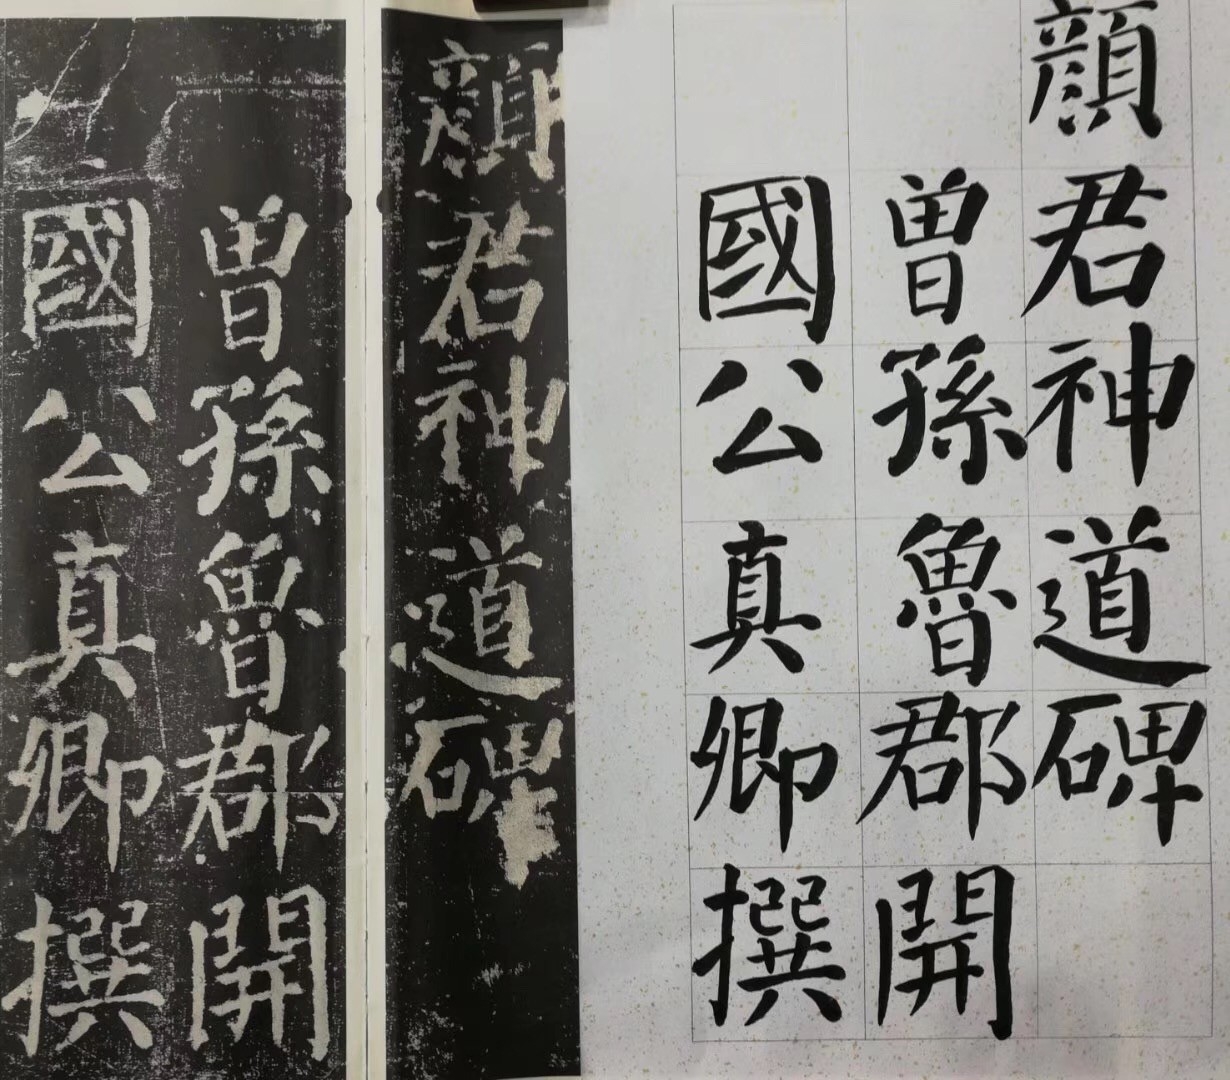 顏君神道碑
曾孫魯郡開
國公真卿撰
顏君神道碑
曾孫魯郡開
國公真卿撰